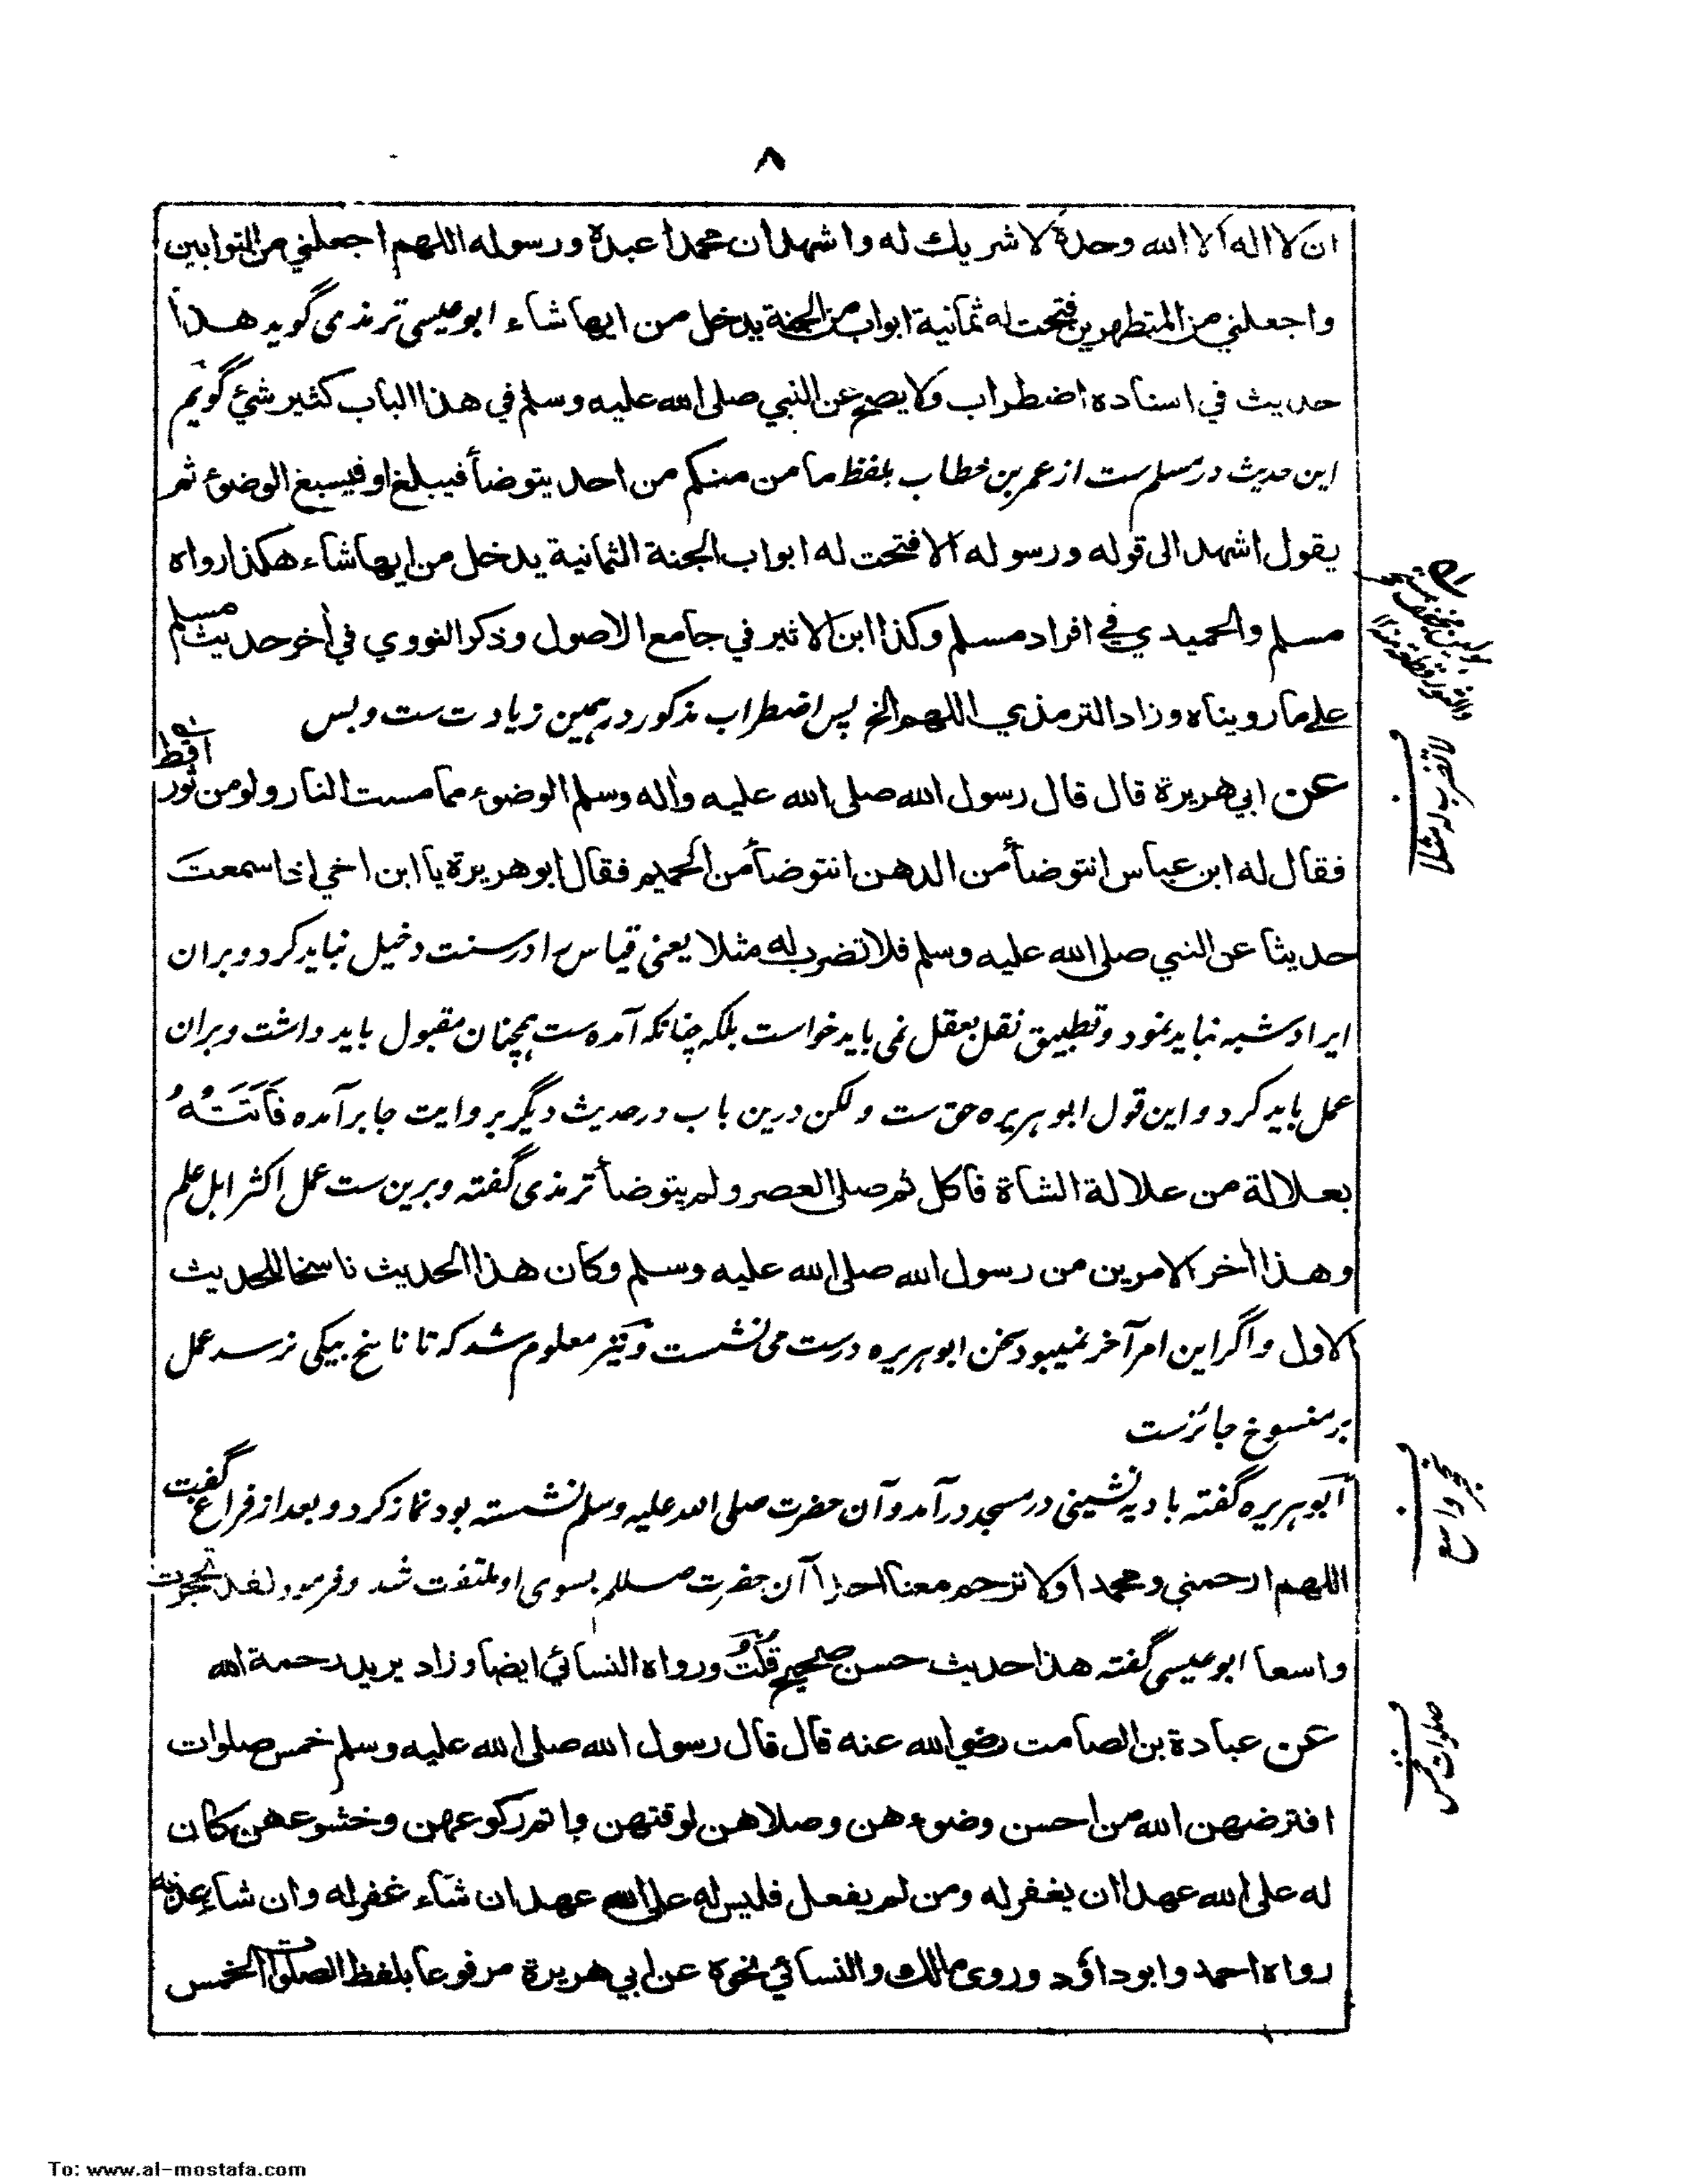 ٨
ان لا اله الا الله وحدة لا شريك له واشهد ان محمدا عبدة ورسوله اللهم اجعلني من التوابين
واجعلني من المتطهرين فتحت له ثمانية ابواب من الجنة يدخل من ايها شاء ابو عيسى ترمذى گويد هذا
حديث في اسناده اضطراب ولا يصح عن النبي صلى الله عليه وسلم في هذا الباب كثير شيئ گويم
اين حديث در مسلم ست از عمر بن خطاب بلفظ ما من منكم من احد يتوضأ فيبلغ او فيسبغ الوضوء ثم
يقول اشهد الى قوله ورسوله الا فتحت له ابواب الجنة الثمانية يدخل من ايها شاء هكذا رواه
مسلم والحميدي في افراد مسلم وكذا ابن الاثير في جامع الاصول وذكر النووي في أخر حديث مسلم
على ما رويناه وزاد الترمذي اللهم الخ پس اضطراب مذكور در همين زيادت ست وبس
عن ابي هريرة قال قال رسول الله صلى الله عليه واله وسلم الوضوء مما مست النار ولو من ثور اقط
فقال له ابن عباس انتوضأ من الدهن انتوضأ من الحميم فقال ابو هريرة يا ابن اخي اذا سمعت
حديثا عن النبي صلى الله عليه وسلم فلا تضرب له مثلا يعنى قياس را در سنت دخيل نبايد كرد وبران
ايراد شبه نبايد نمود وتطبيق نقل بعقل نمى بايد خواست بلكه چنانكه آمده ست همچنان مقبول بايد داشت وبران
عمل بايد كرد واين قول ابو هريره حق ست ولكن درين باب در حديث ديگر بروايت جابر آمده فَأَتَتْهُ
بعلالة من علالة الشاة فاكل ثم صلى العصر ولم يتوضأ ترمذى گفته وبرين ست عمل اكثر اهل علم
وهذا أخر الامرين من رسول الله صلى الله عليه وسلم وكان هذا الحديث ناسخا للحديث
الاول واگر اين امر آخر نميبود سخن ابو هريره درست مى نشست ونيز معلوم شد كه تا ناسخ بيكى نرسد عمل
بر منسوخ جائزست
ابو هريره گفته باديه نشينى در مسجد درآمد وآن حضرت صلى الله عليه وسلم نشسته بود نماز كرد وبعد از فراغ گفت
اللهم ارحمني ومحمدا ولا ترحم معنا احدا آن حضرت صللم بسوى او ملتفت شد وفرمود لقد تحجرت
واسعا ابو عيسى گفته هذا حديث حسن صحيح قُلْتُ ورواه النسائي ايضا وزاد يريد رحمة الله
عن عبادة بن الصامت رضي الله عنه قال قال رسول الله صلى الله عليه وسلم خمس صلوات
افترضهن الله من احسن وضوءهن وصلاهن لوقتهن واتم ركوعهن وخشوعهن كان
له على الله عهدا ان يغفر له ومن لم يفعل فليس له على الله عهد ان شاء غفر له وان شاء عذبه
رواه احمد وابو داؤد وروى مالك والنسائي نحوة عن ابي هريرة مرفوعا بلفظ الصلوات الخمس
لا تضرب له مثلا
تحجر واسع
صلوات خمس
To: www.al-mostafa.com